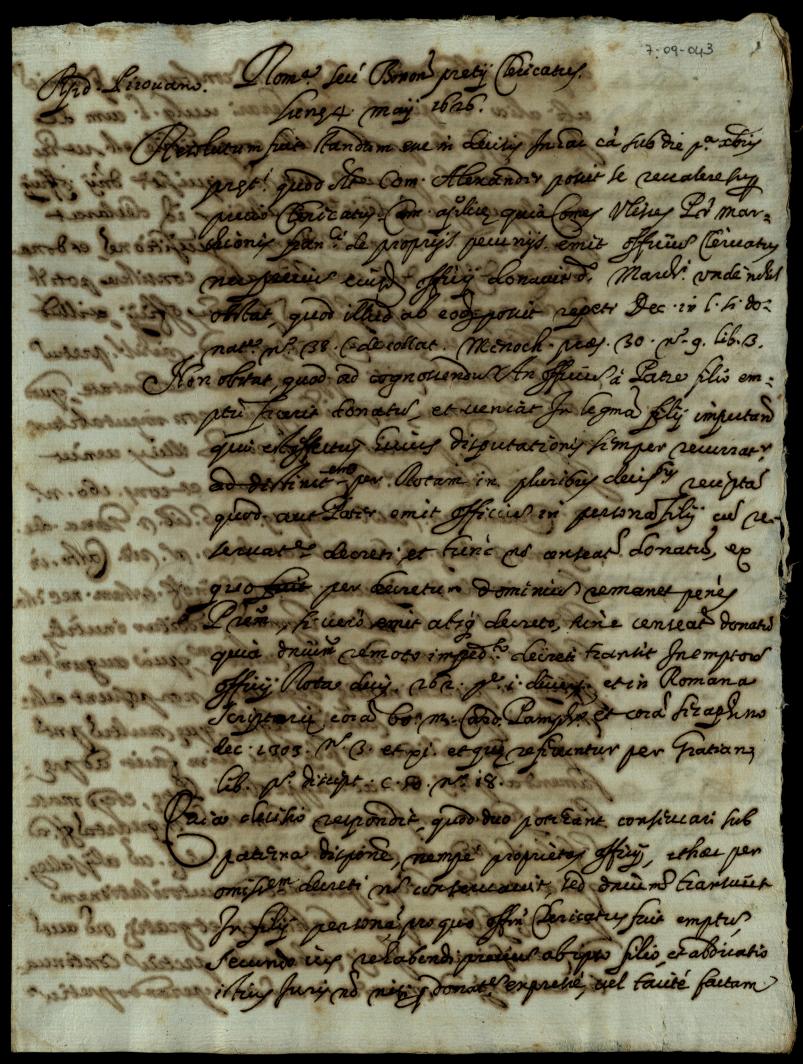 7-09-043
Rom.ª seù Bonon. pretij Clericatus.
R.P.D. Pirovano.
Lunę 4 maij 1626.
Resolutum fuit standum esse in decisis In hac cã sub die p.ª xbris
quod Com. Alexander possit se revalere sup
precio Clericatus Cam. Aplicę quia Comes Vlixes Pr Mar=
chionis de proprijs pecunijs emit officiũ Clericatus
nec precium eiusd. officij donavit d. March. unde nihil
obstat, quod illud ab eod. possit repeti Dec. in l. si do=
natę nº. 38. C. de collat. Menoch. pręs. 30. nº. 9. lib. 3.
Non obstat, quod ad cognoscendũ An officiũ à Patre filio em=
ptũ sit donatũ, et veniat In legmã filij imputand
qui effectus huius disputationis semper recurrat.
per Rotam in pluribus decis.bus recepta
quod aut Pater emit officiũ in personã filij cũ re=
servat.e decreti, et tunc nõ censeat. donatũ, ex
quo per decretum dominiũ remanet penes
Prẽm, si verò emit absq decreto, tunc censeat. donatũ
quia dniũm remoto imped.to decreti transit In emptorẽ
officij Rota decis. 162. p. 1. divers. et in Romana
Scriptorię corã bo: me: Card. Pamph. et corã Seraphino
dec. 1303. nº. 3. et xi. et quę referuntur per Gratian.
lib. pº. discept. c. 50. nº. 18.
Quia decisio respondit, quod duo poterant considerari sub
paterna dispõne, nempè proprietas officij, et hęc per
omiss.em decreti nõ conservavit, sed dniũm transivit
In filij personã, pro quo offiũ Clericatus fuit emptũ,
Secundo ius rehabendi preciũ ab ipso filio, et abdicatio
istius Juris nõ nisi p donat.e expressè, vel tacitè factam